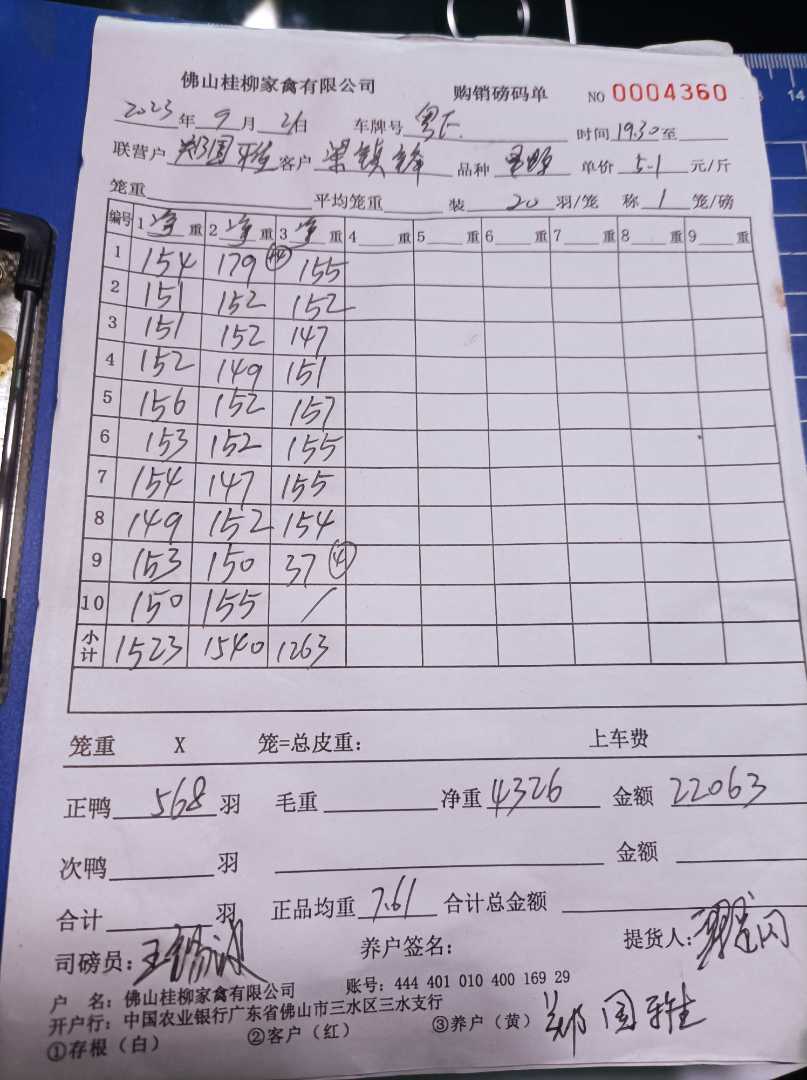 佛山桂柳家禽有限公司 购销磅码单 NO 0004360
2023年9月26日 车牌号 粤E. 时间19.30至
联营户 郑国雅 客户 梁镇锋 品种 单价 5.1 元/斤
笼重 平均笼重 装 20 羽/笼 称 1 笼/磅
编号 1 净 重 2 净 重 3 净 重 4 重 5 重 6 重 7 重 8 重 9 重
1 154 179 155
2 151 152 152
3 151 152 147
4 152 149 151
5 156 152 157
6 153 152 155
7 154 147 155
8 149 152 154
9 153 150 37 ④
10 150 155 /
小计 1523 1540 1263
笼重 X 笼=总皮重: 上车费
正鸭 568 羽 毛重 净重 4326 金额 22063
次鸭 羽 金额
合计 羽 正品均重 7.61 合计总金额
司磅员: 养户签名: 提货人:
户 名: 佛山桂柳家禽有限公司 账号: 444 401 010 400 169 29
开户行: 中国农业银行广东省佛山市三水区三水支行
①存根（白） ②客户（红） ③养户（黄） 郑国雅
14